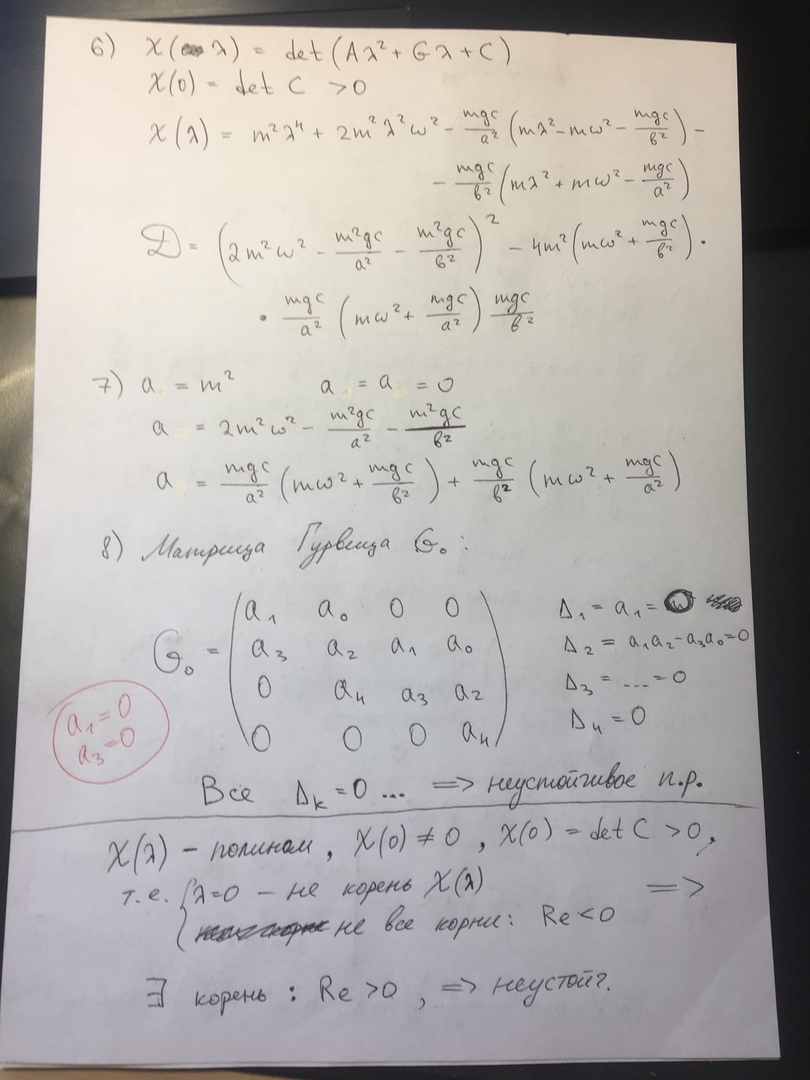 6) χ(λ) = det(Aλ² + Gλ + C)
χ(0) = det C > 0
χ(λ) = m²λ⁴ + 2m²λ²ω² - mgc/a² (mλ² - mω² - mgc/b²) -
- mgc/b² (mλ² + mω² - mgc/a²)
D = (2m²ω² - m²gc/a² - m²gc/b²)² - 4m² (mω² + mgc/b²) ·
· mgc/a² (mω² + mgc/a²) mgc/b²
7) a = m² a = a = 0
a = 2m²ω² - m²gc/a² - m²gc/b²
a = mgc/a² (mω² + mgc/b²) + mgc/b² (mω² + mgc/a²)
8) Матрица Гурвица G₀:
G₀ = ( a₁ a₀ 0 0
a₃ a₂ a₁ a₀
0 a₄ a₃ a₂
0 0 0 a₄ )
Δ₁ = a₁ =
Δ₂ = a₁a₂ - a₃a₀ = 0
Δ₃ = ... = 0
Δ₄ = 0
a₁ = 0
a₃ = 0
Все Δₖ = 0 ... => неустойчивое п.р.
χ(λ) - полином, χ(0) ≠ 0, χ(0) = det C > 0,
т.е. { λ = 0 - не корень χ(λ) =>
не все корни: Re < 0
∃ корень: Re > 0, => неустойч.